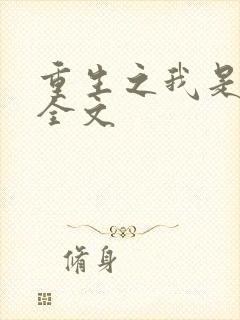 重生之我是
全文
脩身